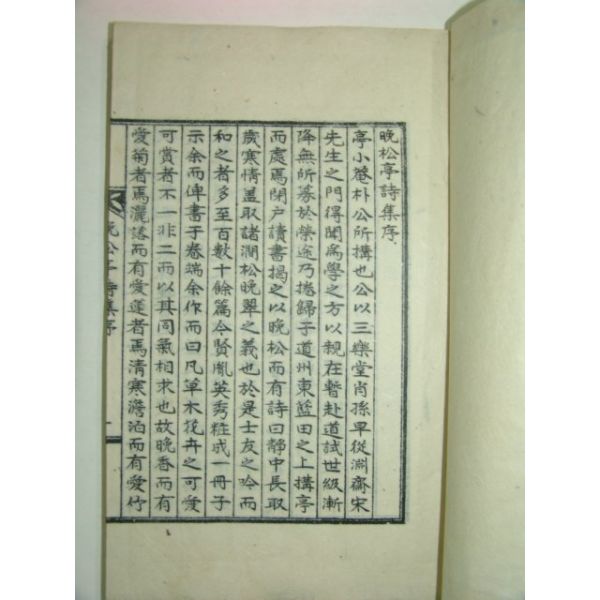 晩松亭詩集序
亭小菴朴公所搆也公以三樂堂肖孫早從淵齋宋
先生之門得聞爲學之方以親在暫赴道試世級漸
降無所慕於榮途乃捲歸于道州東籃田之上搆亭
而處焉閉戶讀書揭之以晩松而有詩曰靜中長取
歲寒情盖取諸澗松晩翠之義也於是士友之吟而
和之者多至百數十餘篇今賢胤英秀粧成一冊子
示余而俾書于卷端余作而曰凡草木花卉之可愛
可賞者不一非二而以其同氣相求也故晩香而有
愛菊者焉灑落而有愛蓮者焉清寒澹泊而有愛竹
晩松亭詩集序